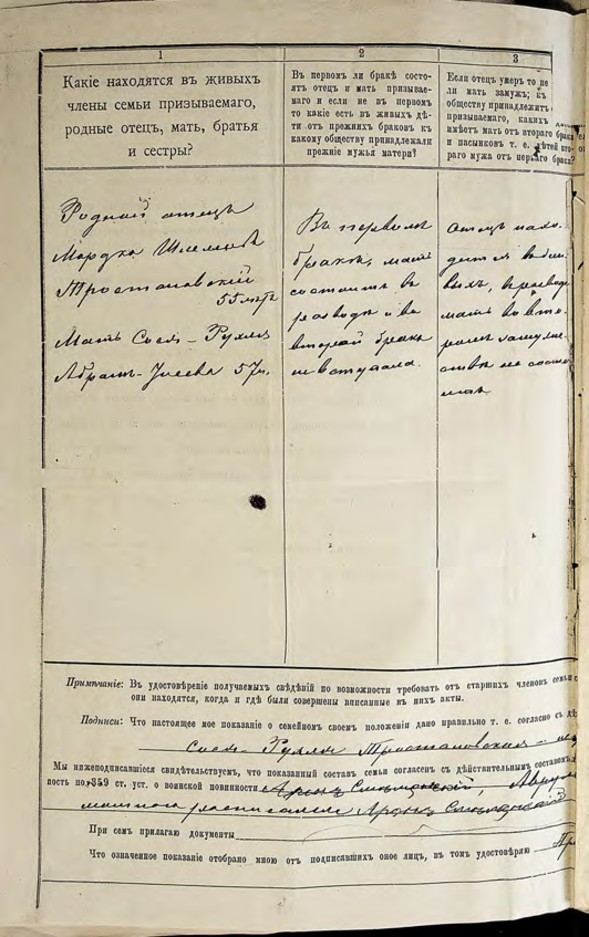 1
Какіе находятся въ живыхъ
члены семьи призываемаго,
родные отецъ, мать, братья
и сестры?
2
Въ первомъ ли бракѣ состо-
ятъ отецъ и мать призывае-
маго и если не въ первомъ
то какіе есть въ живыхъ дѣ-
ти отъ прежнихъ браковъ къ
какому обществу принадлежали
прежніе мужья матери?
3
Если отецъ умеръ то не
ли мать замужъ; къ
обществу принадлежитъ
призываемаго, какихъ
имѣетъ мать отъ втораго брака
и пасынковъ т. е. дѣтей вто-
раго мужа отъ перваго брака?
Родной отецъ
Мордка Шлемовъ
Тростановскій
55 лѣтъ
Мать Сося-Рухля
Абрамъ- 57 л.
Въ первомъ
бракѣ, мать
состоитъ въ
разводѣ и во
второй бракъ
не вступала.
отецъ нахо-
дится въ жи-
выхъ, въ разводѣ
мать во вто-
ромъ замуже-
ствѣ не состо
Примѣчаніе: Въ удостовѣреніе получаемыхъ свѣдѣній по возможности требовать отъ старшихъ членовъ семьи
они находятся, когда и гдѣ были совершены вписанные въ нихъ акты.
Подписи: Что настоящее мое показаніе о семейномъ своемъ положеніи дано правильно т. е. согласно съ
Сося-Рухля Тростановская
Мы нижеподписавшіеся свидѣтельствуемъ, что показанный составъ семьи согласенъ съ дѣйствительнымъ составомъ
ность по 359 ст. уст. о воинской повинности
При семъ прилагаю документы
Что означенное показаніе отобрано мною отъ подписавшихъ оное лицъ, въ томъ удостовѣряю